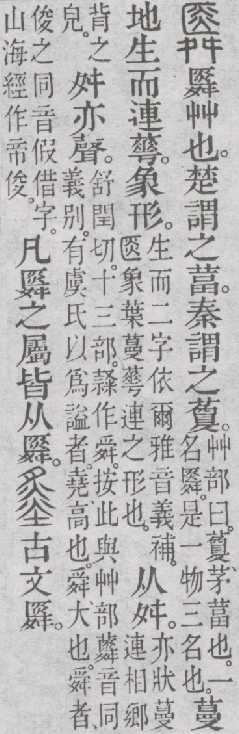 䑞艸也。楚謂之葍。秦謂之藑。艸部曰。藑、茅葍也。一名䑞。是一物三名也。蔓
地生而連蕐。象形。生而二字依爾雅音義補。象葉蔓蕐連之形也。从舛。亦狀蔓連相鄉
背之皃。舛亦聲。舒閏切。十三部。隸作舜。按此與艸部蕣音同義別。有虞氏以爲謚者。堯高也。舜大也。舜者、
俊之同音假借字。山海經作帝俊。凡䑞之屬皆从䑞。古文䑞。